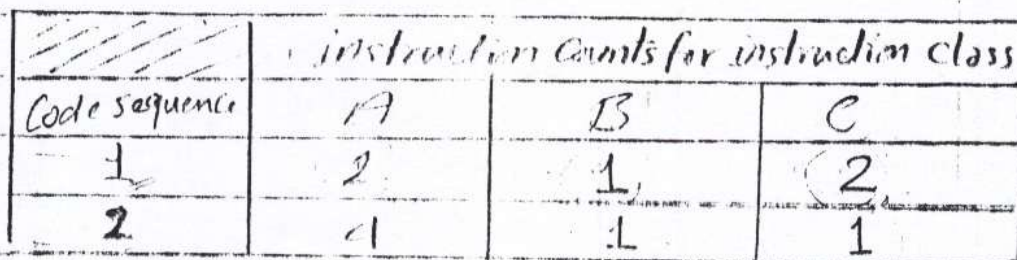 instruction Counts for instruction Class
Code sequence A B C
1 2 1 2
2 4 1 1